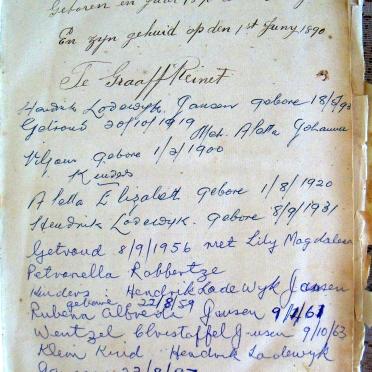 Geboren en Jaar
En zijn gehuid op den 1st Juny 1890.
Te Graaff Reinet
Hendrik Lodewyk Jansen gebore 18/
Getroud 20/10/1919 Met. Aletta Johanna
Viljoen gebore 1/2/1900
Kinders
Aletta Elizabett gebore 1/8/1920
Hendrik Lodewyk. gebore 8/9/1931
Getroud 8/9/1956 met Lily Magdalena
Petronella Robbertze
Kinders : Hendrik Lade Wyk Jansen
gebore 22/8/59
Rubena Albreda Jansen 9/1/61
Wentzel Christoffel Jansen 9/10/63
Klein Kind Hendrik Ladewyk
Jansen 22/8/97